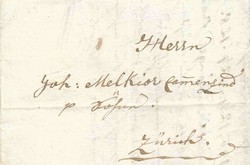 Herrn
Joh: Melkior Camenzind
p Sohn.
Zürich.